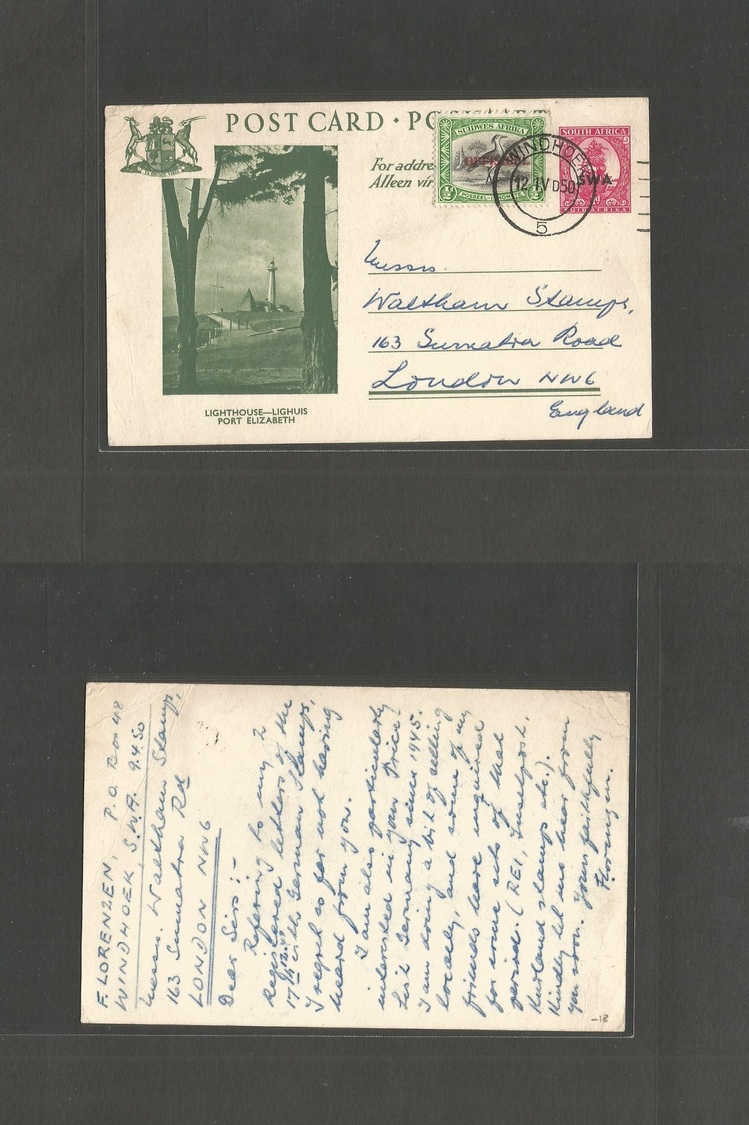 POST CARD · PO
For addre
Alleen vir
SUIDWES AFRIKA
OFFI
½ POSSEEL-INKOMSTE ½
SOUTH AFRICA
SWA
SUID-AFRIKA
WINDHOEK
12 IV 50
5
Messrs.
Waltham Stamps,
163 Sumatra Road
London NW6
England
LIGHTHOUSE—LIGHUIS
PORT ELIZABETH
F. LORENZEN, P.O. Box 48
WINDHOEK S.W.A. 9.4.50
Messrs. Waltham Stamps,
163 Sumatra Rd
LONDON NW6
Dear Sirs:-
Refering to my 2
registered letters of the
17th with German Stamps,
I regret so far not having
heard from you.
I am also particularly
interested in your Price
List Germany since 1945.
I am doing a bit of selling
locally, and some of my
friends have inquired
for some sets of that
period. (REI, Inselpost,
Kurland stamps etc.).
Kindly let me hear from
you soon. Yours faithfully
F. Lorenzen.
-18